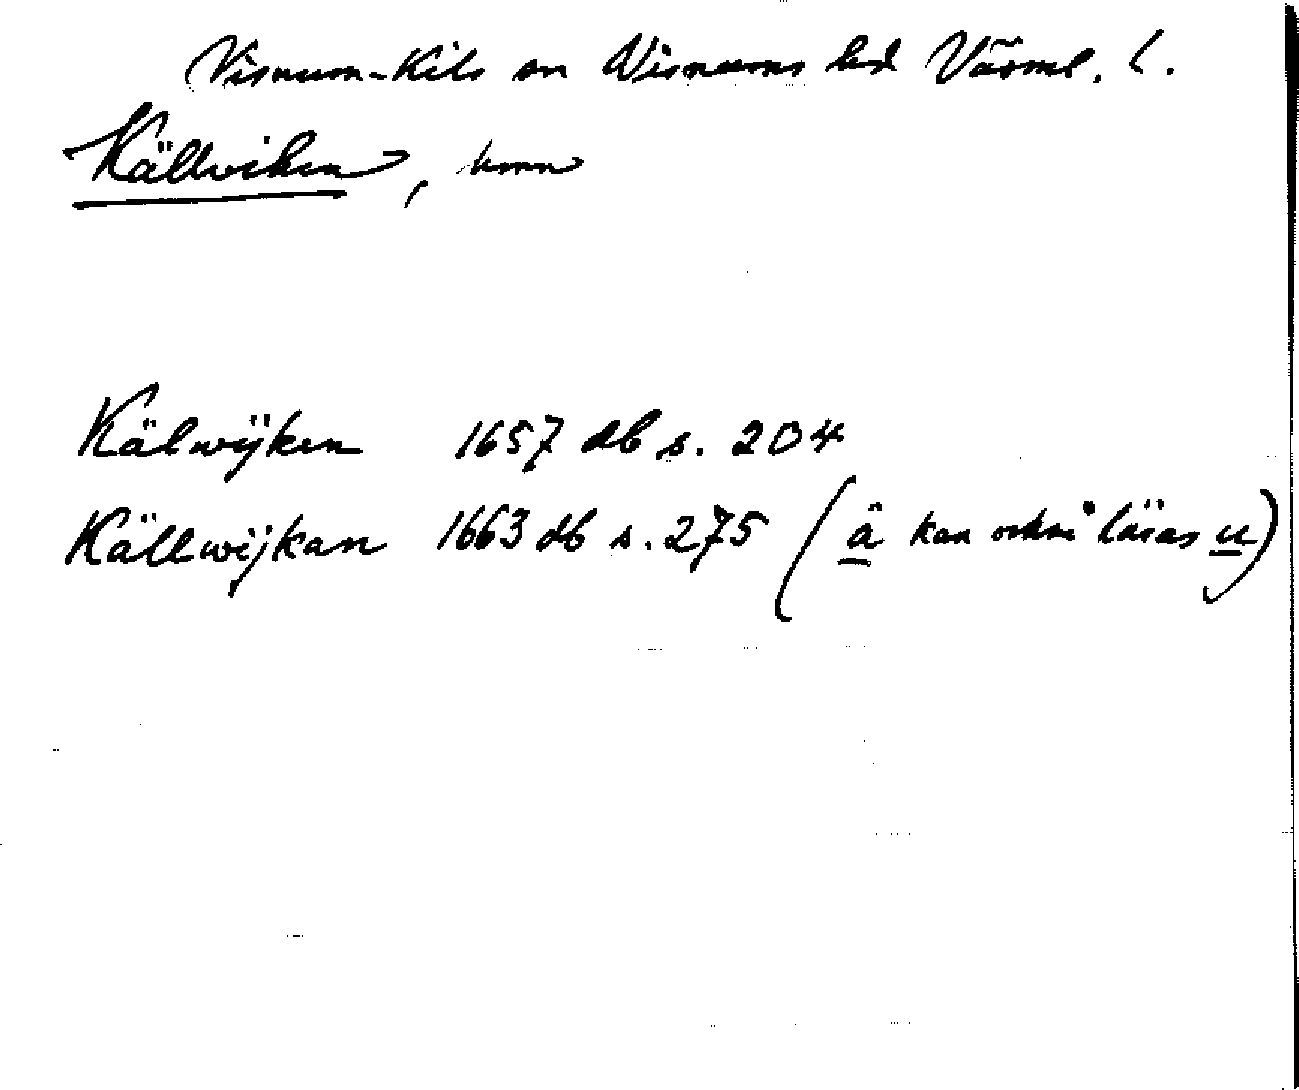 Visnum-Kils sn Visnums hd Värml. l.
Källviken, hmn
Kälwijken 1657 db s. 204
Källwijkan 1663 db s. 275 (ä kan också läsas u)